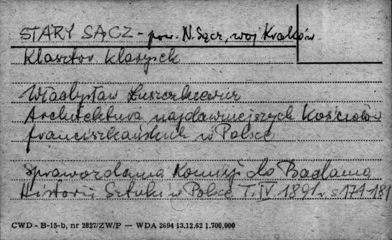 STARY SĄCZ - pow. N. Sącz, woj Kraków
Klasztor Klarysek
Władysław Łuszczkiewicz
Architektura najdawniejszych Kościołów
franciszkańskich w Polsce
Sprawozdania Komisji do Badania
Historii Sztuki w Polsce T. IV 1891 r. s 174-181
CWD - B-15-b, nr 2827/ZW/P — WDA 2694 13.12.62 1.700.000